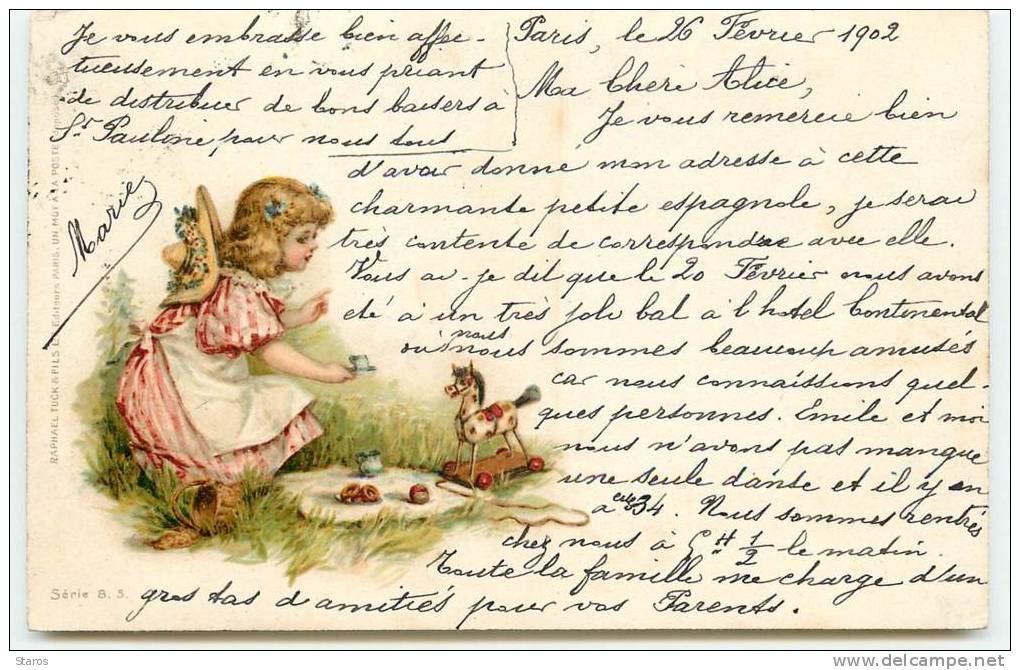 Paris, le 26 Février 1902
Ma Chère Alice,
Je vous remercie bien
d'avoir donné mon adresse à cette
charmante petite espagnole, je serai
très contente de correspondre avec elle.
Vous ai-je dit que le 20 Février nous avons
été à un très joli bal à l'hotel Continental
où nous nous sommes beaucoup amusés
car nous connaissions quel-
ques personnes. Emile et moi
nous n'avons pas manqué
une seule danse et il y en
a eu 34. Nous sommes rentrés
chez nous à 5H 1/2 le matin.
Toute la famille me charge d'un
gros tas d'amitiés pour vos Parents.
Je vous embrasse bien affec-
tueusement en vous priant
de distribuer de bons baisers à
St Pauline pour nous tous
Marie
RAPHAEL TUCK & FILS Ld Editeurs PARIS. UN MOT A LA POSTE
Série B. 5.
Staros
www.delcampe.net